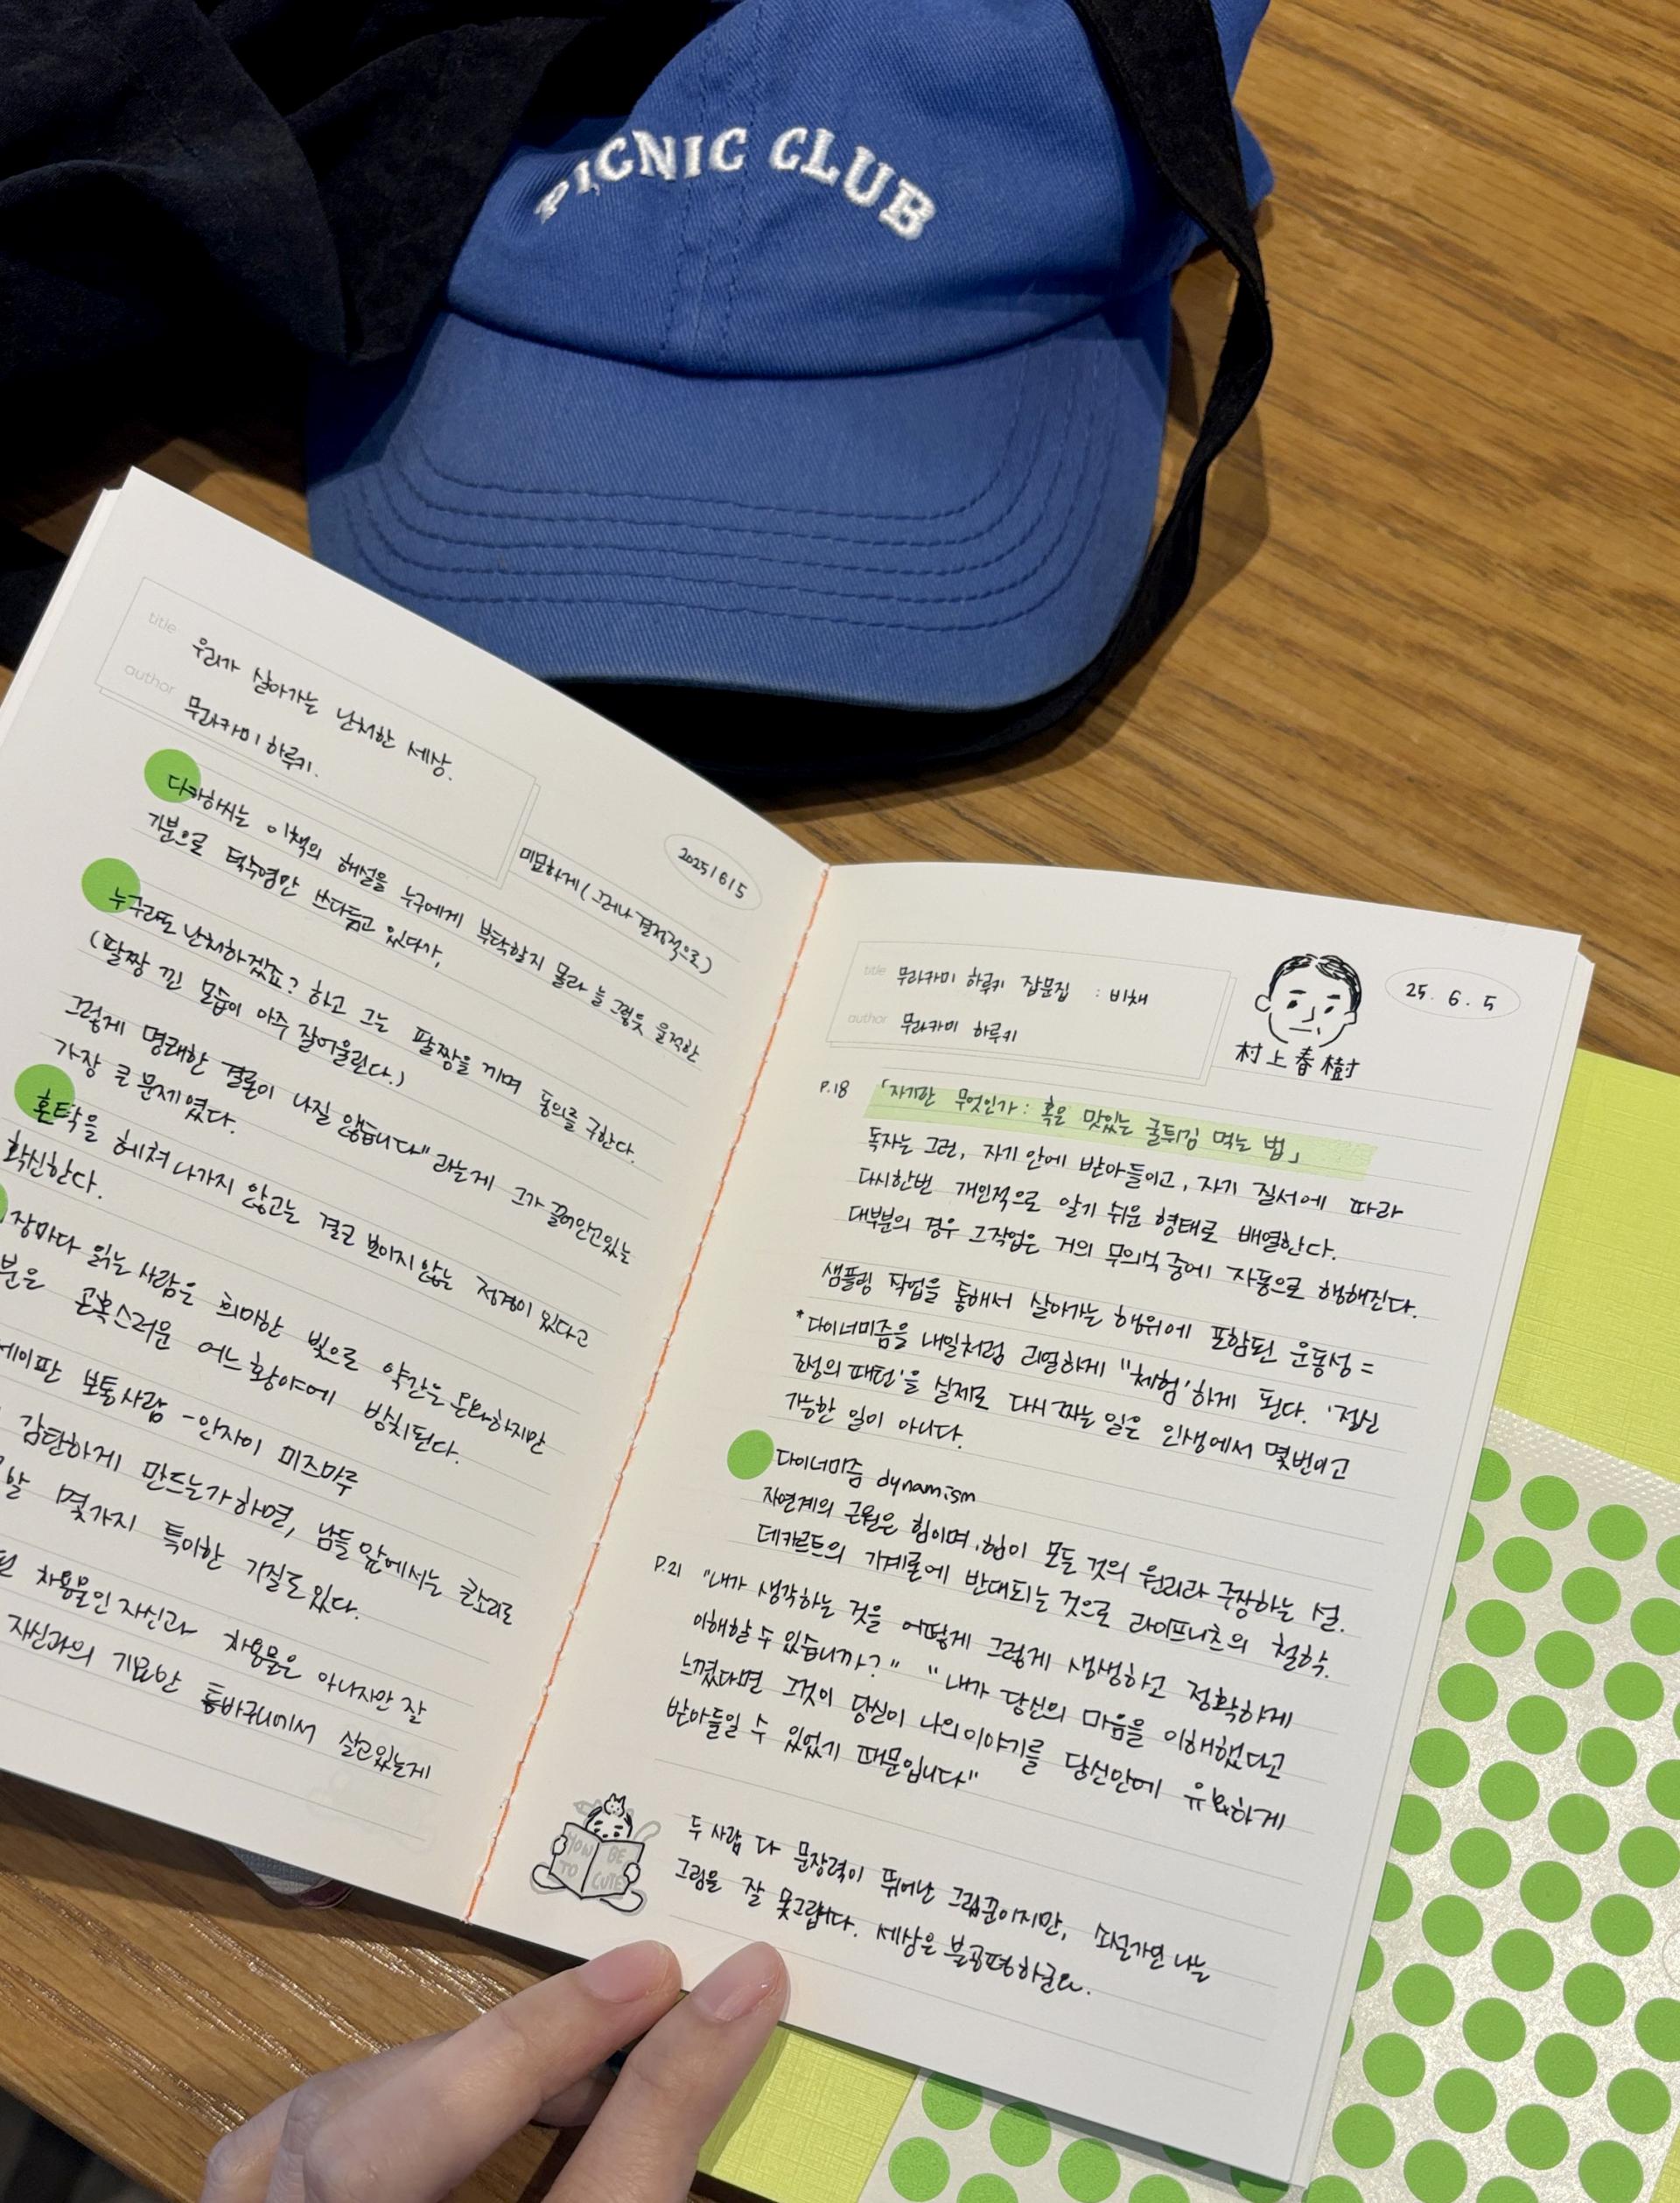 PICNIC CLUB
title 우리가 살아가는 난처한 세상.
author 무라카미 하루키.
2025/6/5
미묘하게(그러나 결정적으로)
다카하시는 이책의 해설을 누구에게 부탁할지 몰라 늘 그렇듯 울적한
기분으로 턱수염만 쓰다듬고 있다가,
누구라도 난처하겠죠? 하고 그는 팔짱을 끼며 동의를 구한다.
(팔짱 낀 모습이 아주 잘어울린다.)
그렇게 명쾌한 결론이 나질 않습니다" 라는게 그가 끌어안고있는
가장 큰 문제였다.
혼탁을 헤쳐 나가지 않고는 결코 보이지 않는 정경이 있다고
확신한다.
장마다 읽는 사람은 희미한 빛으로 약간은 온화하지만
분은 곤혹스러운 어느 황야에 방치된다.
세이판 보통사람 - 안자이 미즈마루
감탄하게 만드는가 하면, 남들 앞에서는 큰소리로
할 몇가지 특이한 기질도있다.
차용물인 자신과 차용물은 아니지만 잘
자신과의 기묘한 틈바구니에서 살고있는게
title 무라카미 하루키 잡문집 : 비채
author 무라카미 하루키
村上春樹
25. 6. 5
P.18 「자기란 무엇인가: 혹은 맛있는 굴튀김 먹는 법」
독자는 그런, 자기 안에 받아들이고, 자기 질서에 따라
다시한번 개인적으로 알기 쉬운 형태로 배열한다.
대부분의 경우 그작업은 거의 무의식 중에 자동으로 행해진다.
샘플링 작업을 통해서 살아가는 행위에 포함된 운동성 =
*다이너미즘을 내일처럼 리얼하게 "체험'하게 된다. '정신
구성의 패턴'을 실제로 다시 짜는 일은 인생에서 몇번이고
가능한 일이 아니다.
다이너미즘 dynamism
자연계의 근원은 힘이며, 힘이 모든 것의 원리라 주장하는 설.
데카르트의 기계론에 반대되는 것으로 라이프니츠의 철학.
P.21 "내가 생각하는 것을 어떻게 그렇게 생생하고 정확하게
이해할 수 있습니까?" "내가 당신의 마음을 이해했다고
느꼈다면 그것이 당신이 나의이야기를 당신안에 유효하게
받아들일 수 있었기 때문입니다"
HOW TO BE CUTE
두 사람 다 문장력이 뛰어난 그림꾼이지만, 소설가인 나는
그림을 잘 못그립다. 세상은 불공평하군요.